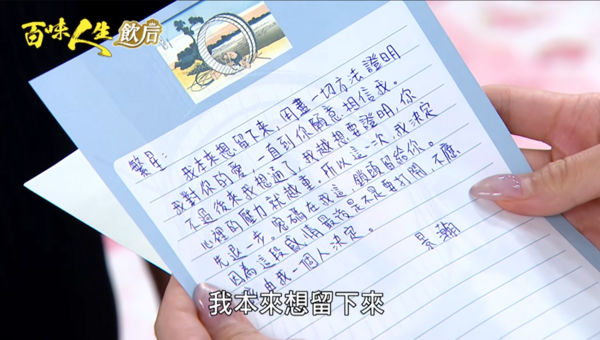 百味人生 飲后
繁星:
我本來想留下來,用盡一切方法證明
我對你的愛,一直到你願意相信我。
不過後來我想通了,我越想要證明,你
心裡的壓力就越重,所以這一次,我決定
先退一步。密碼在我這,鎖頭留給你。
因為這段感情最後是不是要打開,不應
由我一個人決定。
景瀚
我本來想留下來